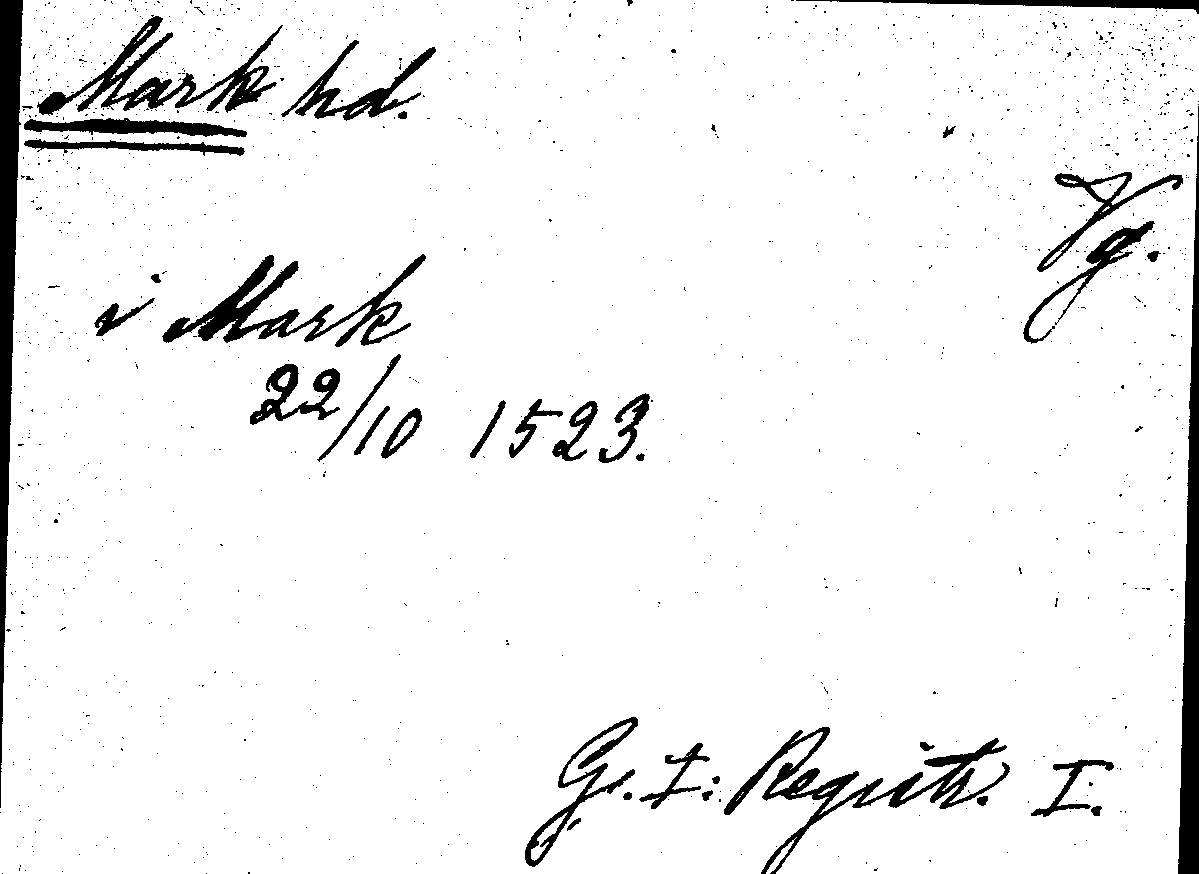 Mark hd.
Vg.
i Mark
22/10 1523.
G. I: Registr. I.